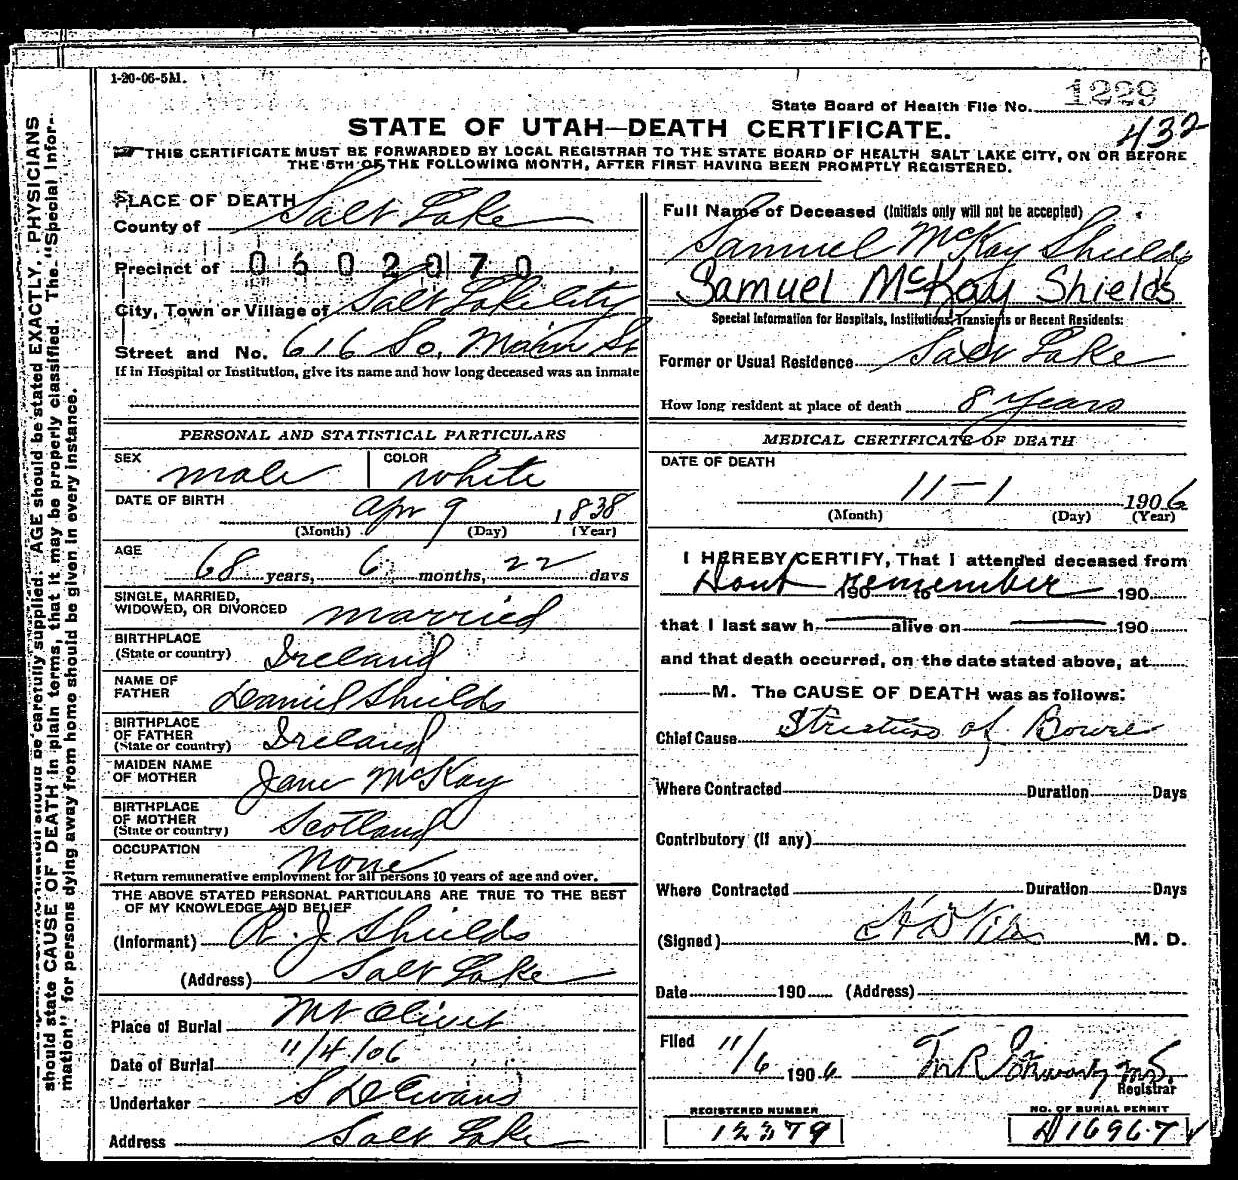 1-20-06-5M.
State Board of Health File No. 1229
432
STATE OF UTAH—DEATH CERTIFICATE.
THIS CERTIFICATE MUST BE FORWARDED BY LOCAL REGISTRAR TO THE STATE BOARD OF HEALTH SALT LAKE CITY, ON OR BEFORE
THE 5TH OF THE FOLLOWING MONTH, AFTER FIRST HAVING BEEN PROMPTLY REGISTERED.
PLACE OF DEATH
County of Salt Lake
Precinct of 0602070
City, Town or Village of Salt Lake City
Street and No. 616 So. Main St
If in Hospital or Institution, give its name and how long deceased was an inmate
PERSONAL AND STATISTICAL PARTICULARS
SEX male COLOR white
DATE OF BIRTH Apr 9 1838
(Month) (Day) (Year)
AGE 68 years, 6 months, 22 days
SINGLE, MARRIED,
WIDOWED, OR DIVORCED married
BIRTHPLACE
(State or country) Ireland
NAME OF
FATHER Daniel Shields
BIRTHPLACE
OF FATHER
(State or country) Ireland
MAIDEN NAME
OF MOTHER Jane McKay
BIRTHPLACE
OF MOTHER
(State or country) Scotland
OCCUPATION None
Return remunerative employment for all persons 10 years of age and over.
THE ABOVE STATED PERSONAL PARTICULARS ARE TRUE TO THE BEST
OF MY KNOWLEDGE AND BELIEF
(Informant) R. J. Shields
(Address) Salt Lake
Place of Burial Mt Olivet
Date of Burial 11/4/06
Undertaker S D Evans
Address Salt Lake
Full Name of Deceased (Initials only will not be accepted)
Samuel McKay Shields
Samuel McKay Shields
Special Information for Hospitals, Institutions, Transients or Recent Residents:
Former or Usual Residence Salt Lake
How long resident at place of death 8 years
MEDICAL CERTIFICATE OF DEATH
DATE OF DEATH
11-1 1906
(Month) (Day) (Year)
I HEREBY CERTIFY, That I attended deceased from
Dont 190 to remember 190
that I last saw h alive on 190
and that death occurred, on the date stated above, at
M. The CAUSE OF DEATH was as follows:
Chief Cause Stricture of Bowel
Where Contracted Duration Days
Contributory (If any)
Where Contracted Duration Days
(Signed) M. D.
Date 190 (Address)
Filed 11/6 1906
Registrar
REGISTERED NUMBER
12379
NO. OF BURIAL PERMIT
16967
should state CAUSE OF DEATH in plain terms, that it may be properly classified. The "Special Infor-
mation" for persons dying away from home should be given in every instance.
should be carefully supplied. AGE should be stated EXACTLY, PHYSICIANS